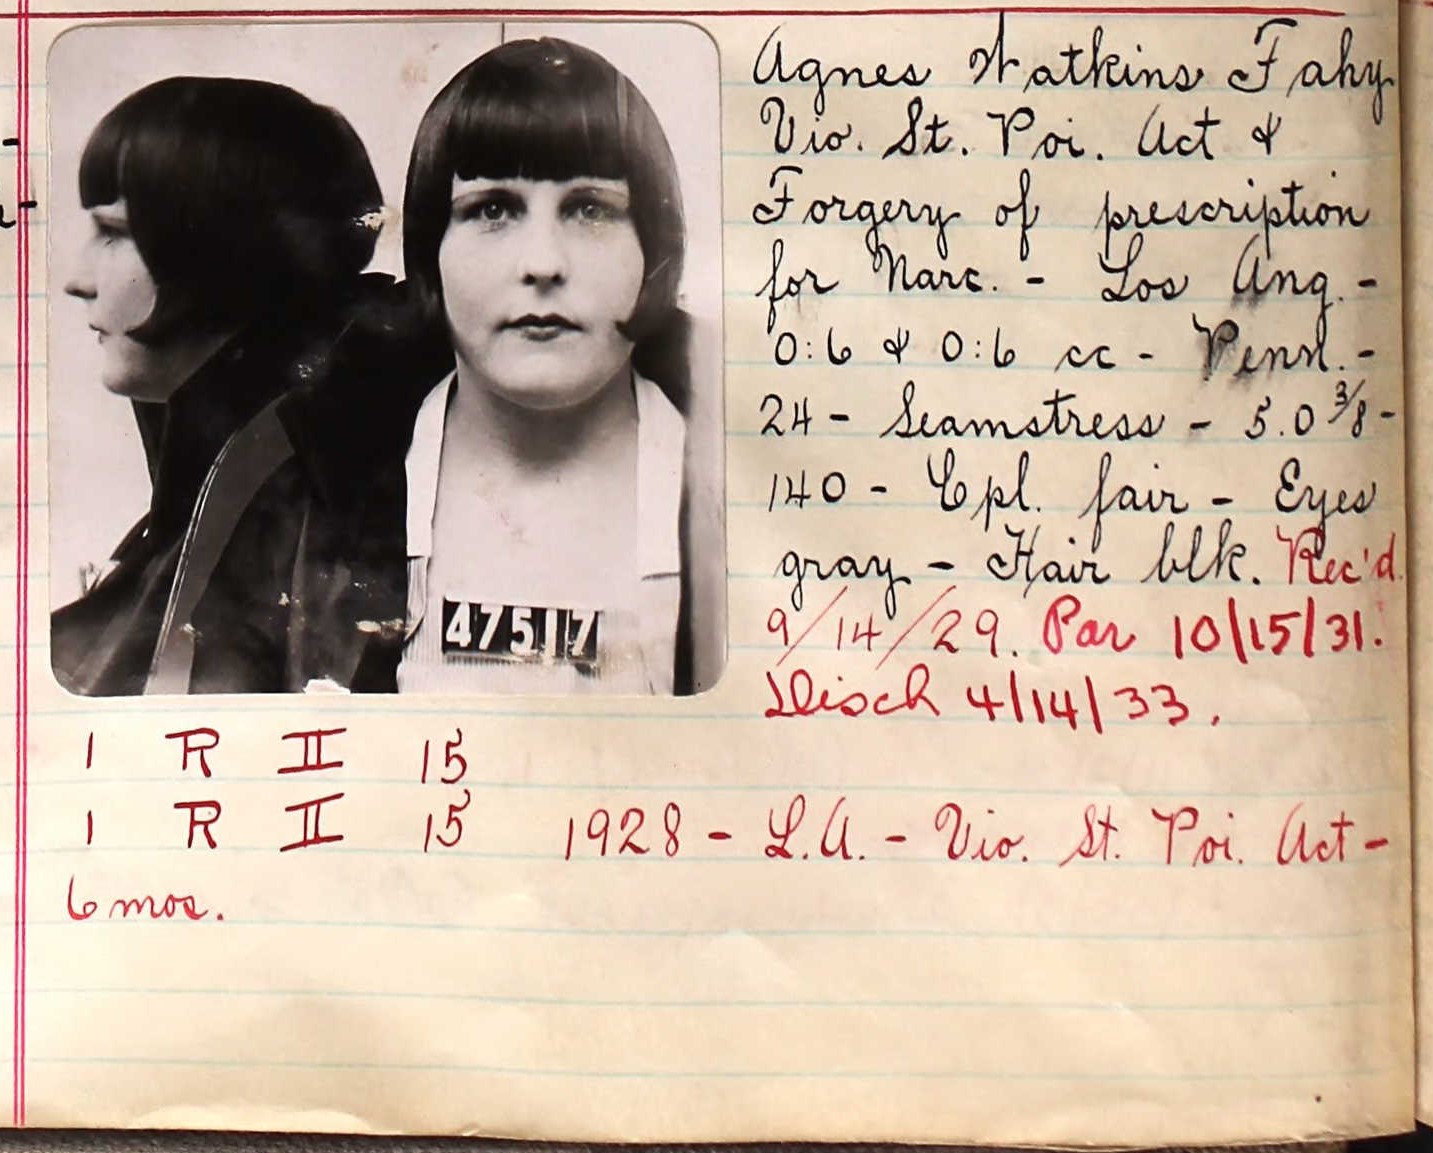 Agnes Watkins Fahy
Vio. St. Poi. Act &
Forgery of prescription
for Narc. - Los Ang. -
0:6 & 0:6 cc - Penn. -
24 - Seamstress - 5.0 3/8 -
140 - Cpl. fair - Eyes
gray - Hair blk. Rec'd
9/14/29. Par 10/15/31.
Disch 4/14/33.
47517
1 R II 15
1 R II 15 1928 - L.A. - Vio. St. Poi. Act -
6 mos.